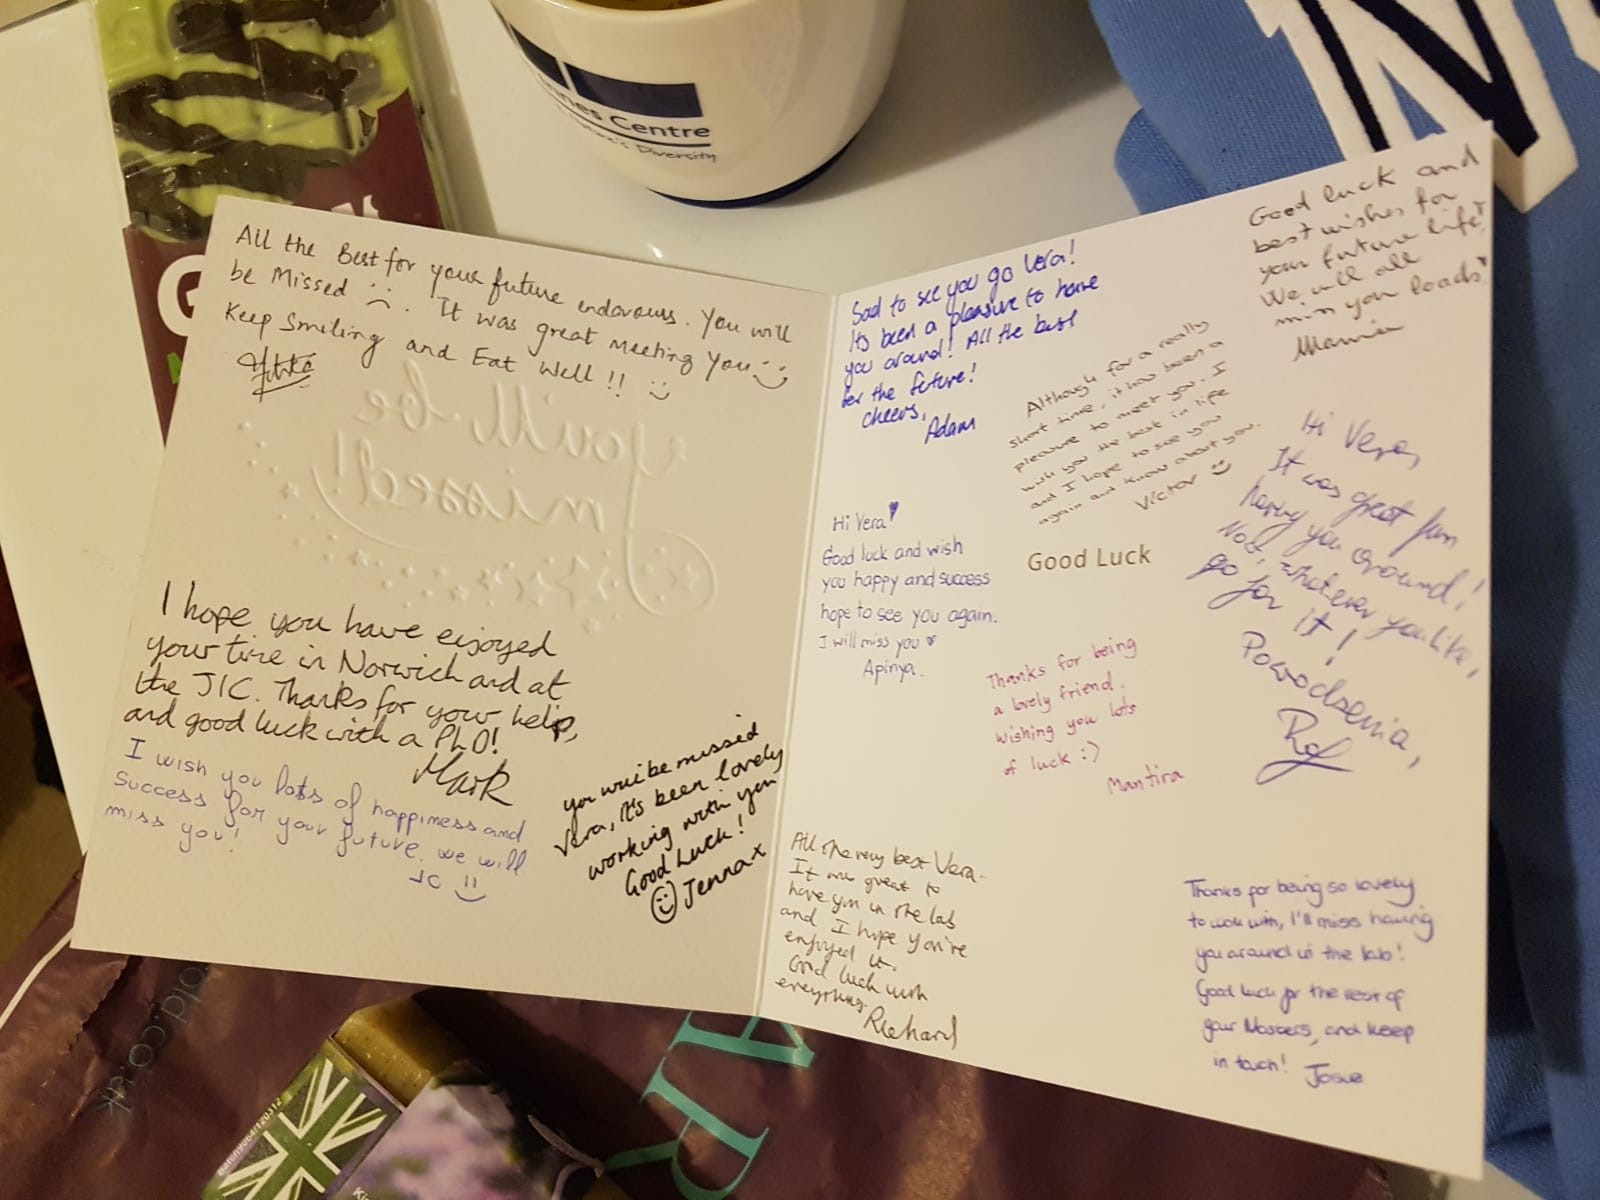 nnes Centre
Diversity
All the Best for your future endavours. You will
be Missed :(. It was great Meeting You :)
Keep Smiling and Eat Well!! :)
You'll be
missed!
I hope you have enjoyed
your time in Norwich and at
the JIC. Thanks for your help,
and good luck with a PhD!
Mark
I wish you lots of happiness and
success for your future. We will
miss you!
Jo :)
you will be missed
Vera, it's been lovely
working with you
Good Luck!
Jenna x
Sad to see you go Vera!
Its been a pleasure to have
you around! All the best
for the future!
cheers,
Adam
Good luck and
best wishes for
your future life!
We will all
miss you loads!
Although for a really
short time, it has been a
pleasure to meet you. I
wish you the best in life
and I hope to see you
again and know about you.
Victor :)
Hi Vera ♥
Good luck and wish
you happy and success
hope to see you again.
I will miss you ♥
Apinya.
Good Luck
Hi Vera,
It was great fun
having you around!
Now, whatever you like,
go for it!
Powodzenia,
Thanks for being
a lovely friend.
wishing you lots
of luck :)
Mantira
All the very best Vera.
It was great to
have you in the lab
and I hope you've
enjoyed it.
Good luck with
everything
Richard
Thanks for being so lovely
to work with, I'll miss having
you around in the lab!
Good luck for the rest of
your Masters, and keep
in touch!
old.co.uk